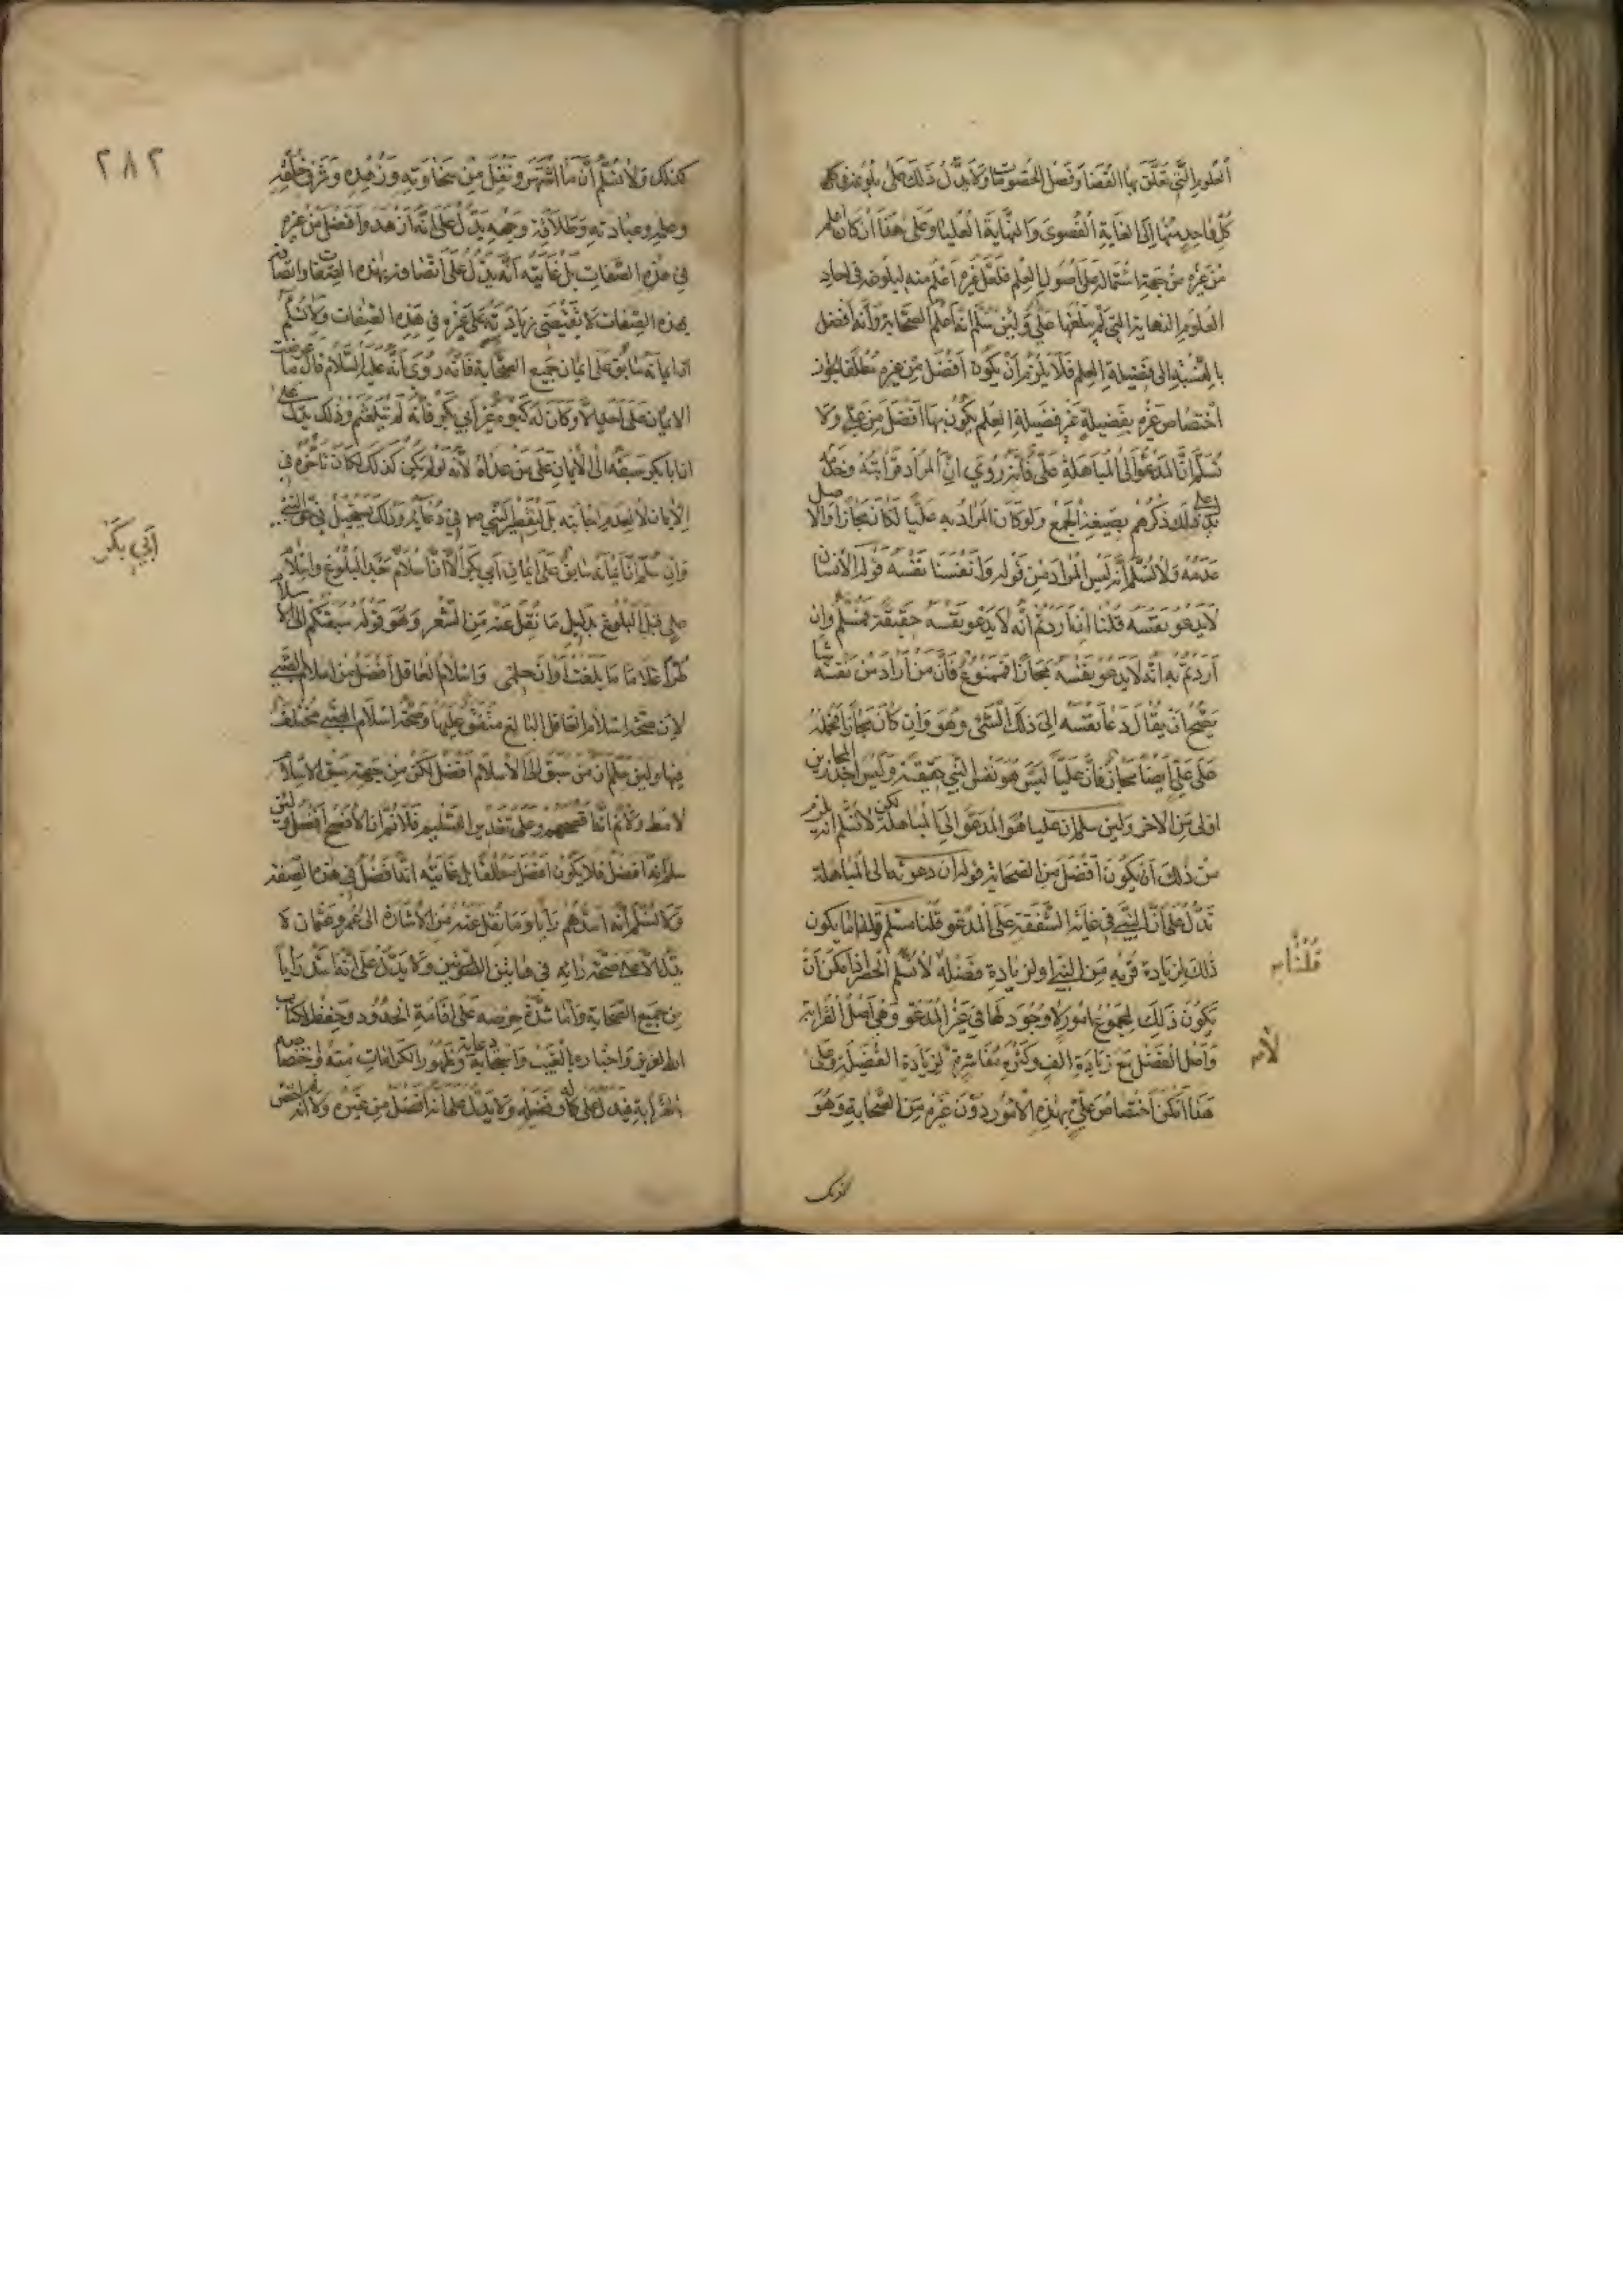 العلوم التي تعلق بها القضا وفصل الخصومات ولا يدل ذلك على بلوغه في
كل واحد منها الى الغاية القصوى والنهاية العليا وعلى هذا ان كان اعلم
من غيره من جهة اشتماله على اصول العلم فلعل غيره اعلم منه لبلوغه في احاد
العلوم النهاية التي لم يبلغها علي ولئن سلم انه اعلم الصحابة وانه افضل
بالنسبة الى فضيلة العلم فلا يلزم ان يكون افضل من غيره مطلقا لجواز
اختصاص غيره بفضيلة غير فضيلة العلم يكون بها افضل من علي ولا
نسلم ان المدعو الى المباهلة علي فانه روي ان المراد قرابته وخدمه
يدل على ذلك ذكرهم بصيغة الجمع ولو كان المراد به عليا لكان مجازا والاصل
عدمه ولا نسلم انه ليس المراد من قوله وانفسنا نفسه قوله الانسان
لا يدعو نفسه قلنا ان اردتم انه لا يدعو نفسه حقيقة فمسلم وان
اردتم به انه لا يدعو نفسه مجازا فممنوع فان من اراد من نفسه شيا
يصح ان يقال دعا نفسه الى ذلك الشئ وهو وان كان مجازا فحمله
على علي ايضا مجاز فان عليا ليس هو نفس النبي حقيقة وليس احد المجازين
اولى من الاخر ولئن سلم ان عليا هو المدعو الى المباهلة لكن لا نسلم انه يلزم
من ذلك ان يكون افضل من الصحابة قوله ان دعوته الى المباهلة
تدل على ان النبي في غاية الشفقة على المدعو قلنا مسلم قوله انما يكون
ذلك لزيادة قربه من النبي او لزيادة فضله لا نسلم الحصر اذ امكن ان
يكون ذلك لمجموع امور لا وجود لها في غير المدعو وهي اصل القرابة
واصل الفضل مع زيادة الف وكثرة معاشرة لا لزيادة الفضيلة وعلى
هذا امكن اختصاص علي بهذه الامور دون غيره من الصحابة وهو
قلنا
لا
كذلك
٢٨٢
كذلك ولا نسلم ان ما اشتهر ونقل من سخاوته وزهده وشرف خلقه
وحلمه وعبادته وطلاقة وجهه يدل على انه ازهد وافضل من غيره
في هذه الصفات بل غايته انه يدل على اتصافه بهذه الصفات واتصافه
بهذه الصفات لا تقتضي زيادته على غيره في هذه الصفات ولا نسلم
ان ايمانه سابق على ايمان جميع الصحابة فانه روي انه عليه السلام قال ما عرضت
الايمان على احد الا وكان له كبوة غير ابي بكر فانه لم يتلعثم وذلك يدل على
ان ابا بكر سبقه الى الايمان على من عداه لانه لو لم يكن كذلك لكان تاخره في
الايمان لا لعدم اجابته بل لتقصير النبي في دعائه وذلك مستحيل في حق النبي
وان سلم ان ايمانه سابق على ايمان ابي بكر الا ان اسلام عند البلوغ واسلام
علي قبل البلوغ بدليل ما نقل عنه من الشعر وهو قوله سبقتكم الى الاسلام
طرا غلاما ما بلغت اوان حلمي واسلام العاقل افضل من اسلام الصبي
لان صحة اسلام العاقل البالغ متفق عليها وصحة اسلام الصبي مختلف
فيها ولئن سلم ان من سبق الى الاسلام افضل لكن من جهة سبق الاسلام
لا مطلقا ولا نم انه افصحهم وعلى تقدير التسليم فلا نم ان الافصح افضل ولئن
سلم انه افضل فلا يكون افضل مطلقا بل غايته انه افضل في هذه الصفة
ولا نسلم انه اسدهم رايا وما نقل عنه من الاشارة الى عمر وعثمان لا
يدل الا على صحة رايه في هاتين الصورتين ولا يدل على انه اسد رايا
من جميع الصحابة واما شدة حرصه على اقامة الحدود وحفظ كتاب
الله العزيز واخباره بالغيب واستجابة دعائه وظهور الكرامات منه واختصاصه
القرابة فيدل على كمال فضله ولا يدل على انه افضل من غيره ولا
ابي بكر